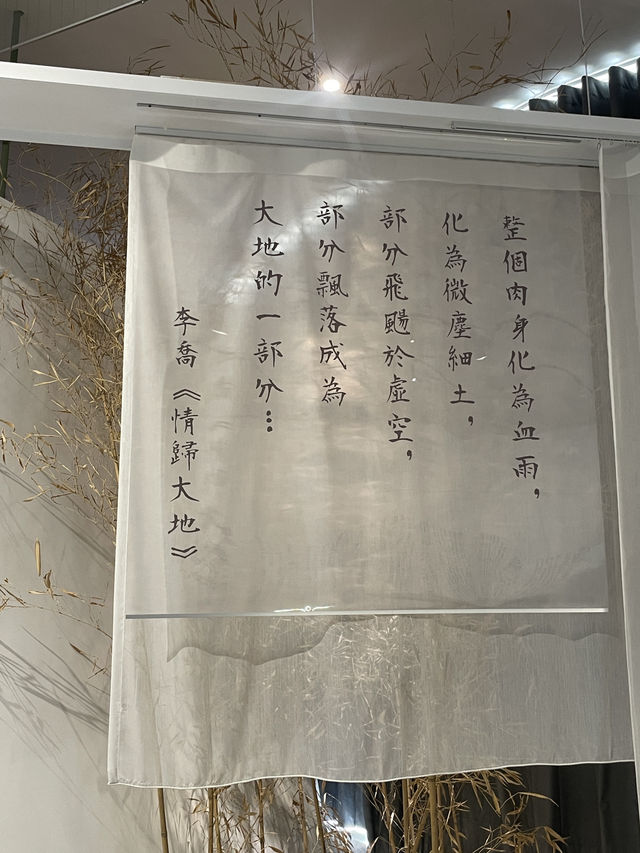 整個肉身化為血雨，
化為微塵細土，
部分飛颺於虛空，
部分飄落成為
大地的一部分…
李喬《情歸大地》